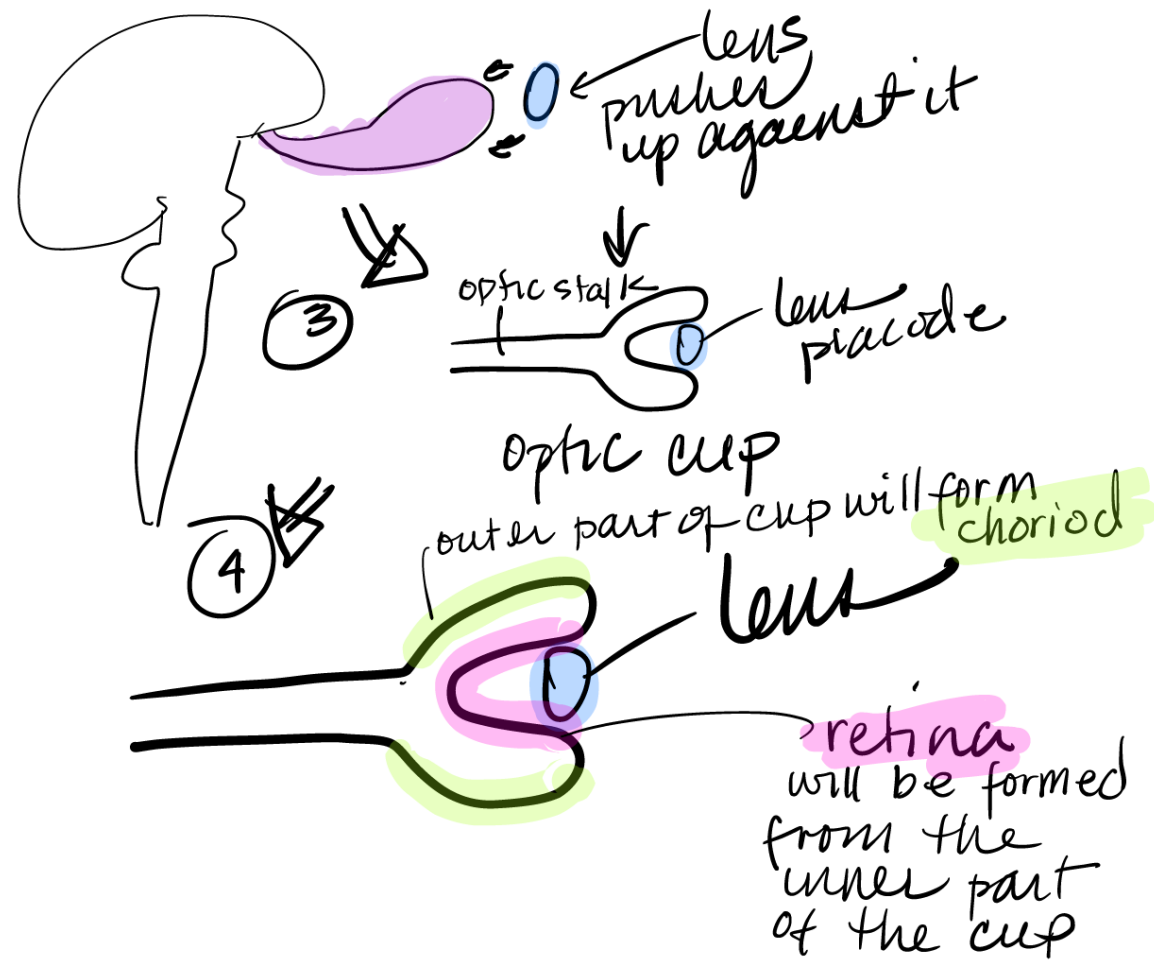 lens
pushes
up against it
3
optic stalk
lens
placode
optic cup
4
outer part of cup will form
choriod
lens
retina
will be formed
from the
inner part
of the cup